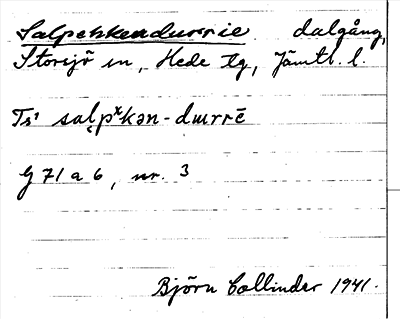 Salpehkendurrie. dalgång,
Storsjö sn, Hede tg, Jämtl. l.
Ts¹ sal̨pˣkən-dɯrrē
G 71 a 6, nr. 3
Björn Collinder 1941.